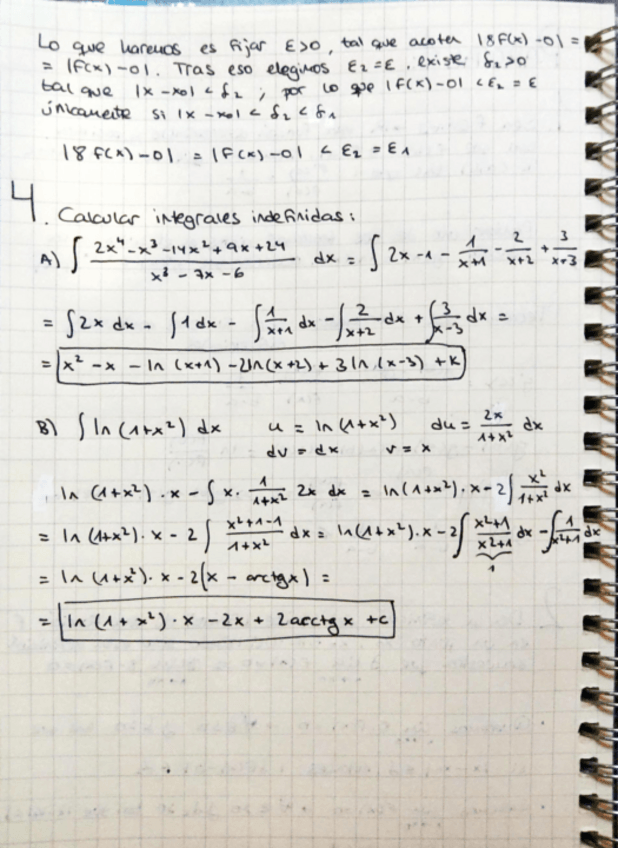 Lo que haremos es fijar ε>0, tal que acoten |8f(x)-0| =
= |f(x)-0|. Tras eso elegimos ε₂=ε, existe δ₂>0
tal que |x-x₀| < δ₂ ; por lo que |f(x)-0| < ε₂ = ε
únicamente si |x-x₀| < δ₂ < δ₁
|8f(x)-0| = |f(x)-0| < ε₂ = ε₁
4. Calcular integrales indefinidas:
A) ∫ (2x⁴-x³-14x²+9x+24)/(x³-7x-6) dx = ∫ 2x-1 - 1/(x+1) - 2/(x+2) + 3/(x+3)
= ∫2x dx - ∫1 dx - ∫ 1/(x+1) dx - ∫ 2/(x+2) dx + ∫ 3/(x-3) dx =
= x² - x - ln (x+1) - 2ln(x+2) + 3 ln (x-3) + K
B) ∫ ln (1+x²) dx u = ln (1+x²) du = 2x/(1+x²) dx
dv = dx v = x
ln (1+x²) · x - ∫ x · 1/(1+x²) 2x dx = ln(1+x²) · x - 2∫ x²/(1+x²) dx
= ln (1+x²) · x - 2 ∫ (x²+1-1)/(1+x²) dx = ln(1+x²) · x - 2∫ (x²+1)/(x²+1) dx - ∫ 1/(x²+1) dx
1
= ln (1+x²) · x - 2(x - arctg x) =
= ln (1+x²) · x - 2x + 2 arctg x + c